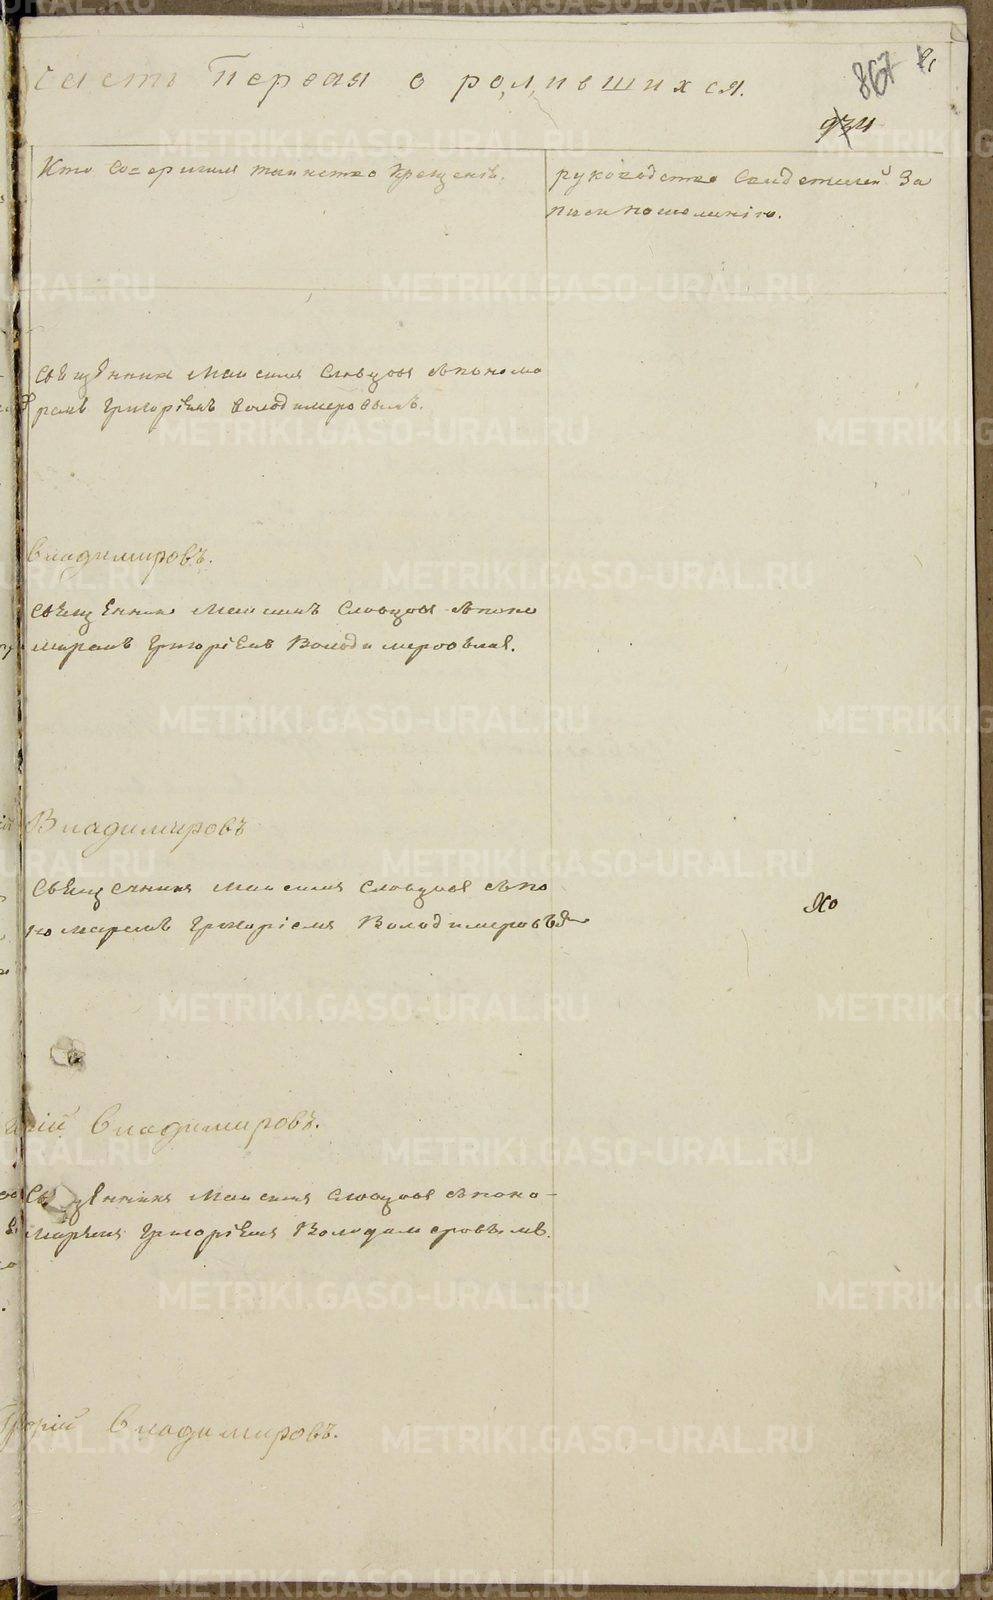 часть Первая о родившихся.
867
934
Кто Совершилъ таинство Крещенія.
рукоподство Свидетелей За
писи пожеланію.
Свещѣнникъ Максимъ Словцовъ съпонома
ремъ Григоріемъ Володимеровымъ.
Владимировъ.
Свещѣнникъ Максимъ Словцовъ съпоно
маремъ Григоріемъ Володимеровымъ.
Владимировъ
Свещенникъ Максимъ Словцовъ съпо
номаремъ Григоріемъ Володимеровым
горій Владимировъ.
Свещѣнникъ Максимъ Словцовъ съпоно-
маремъ Григоріемъ Володимеровымъ.
Григорій Владимировъ.
METRIKI.GASO-URAL.RU